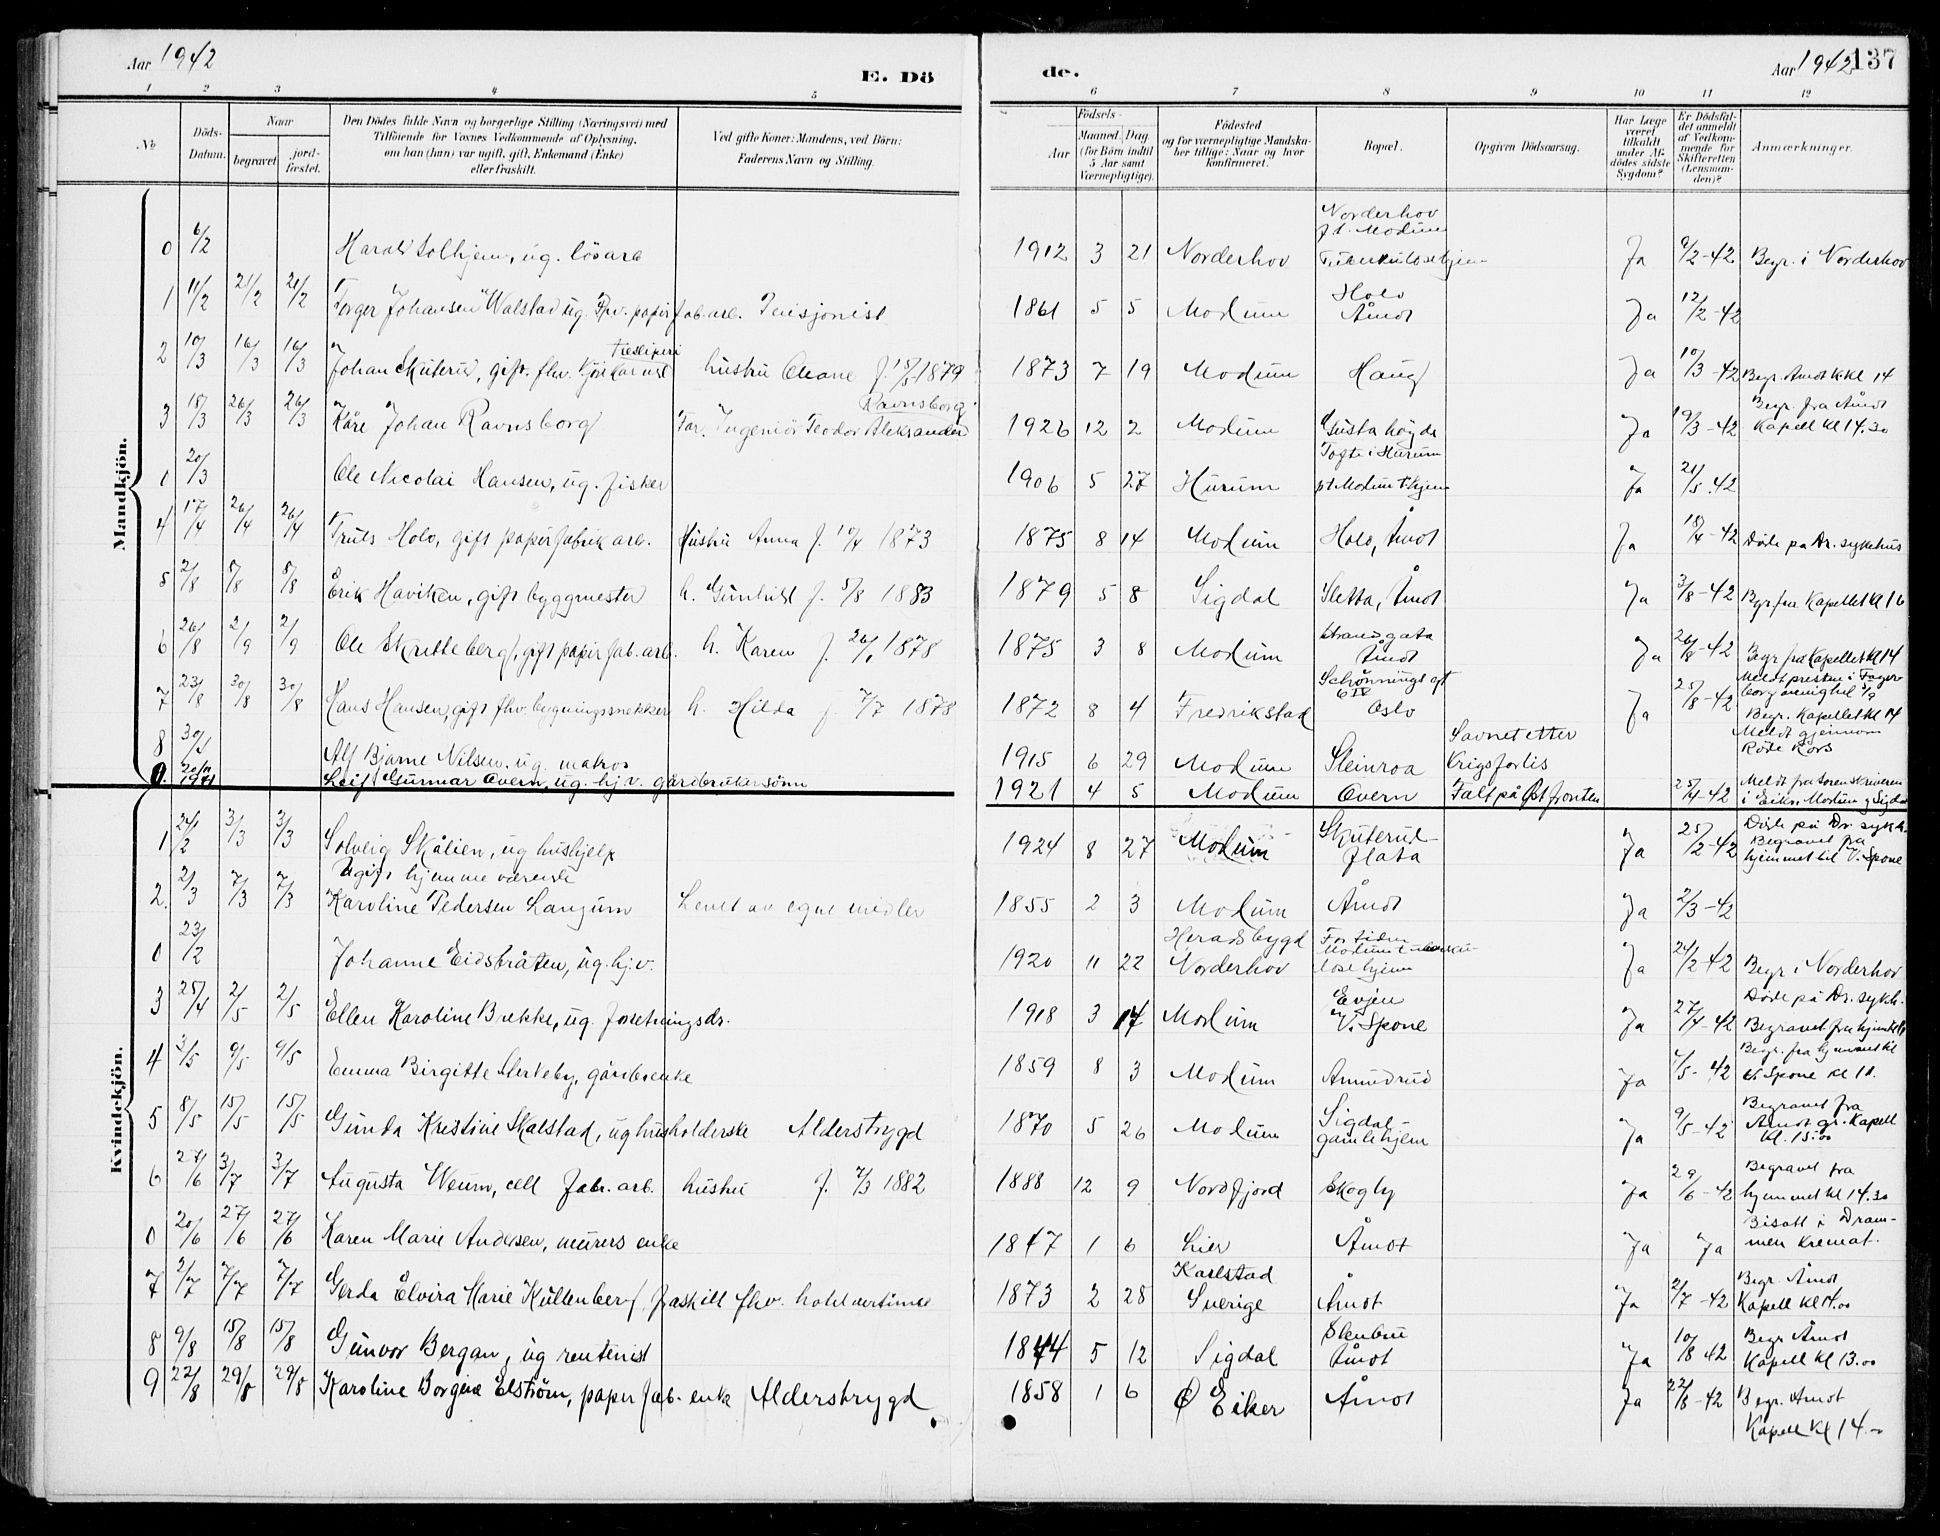 Aar 1942
E. Dö
de.
Aar 1942 137
1 2 3 4 5 6 7 8 9 10 11 12
No
Döds-Datum.
Naar
begravet.
jord-fæstet.
Den Dödes fulde Navn og borgerlige Stilling (Næringsvei) med
Tilföiende for Voxnes Vedkommende af Oplysning,
om han (hun) var ugift, gift, Enkemand (Enke)
eller fraskilt.
Ved gifte Koner: Mandens, ved Börn:
Faderens Navn og Stilling.
Födsels-
Aar
Maaned. Dag.
(for Börn indtil 5 Aar samt Værnepligtige).
Födested
og for værnepligtige Mandska-
ber tillige: Naar og hvor
konfirmeret.
Bopæl.
Opgiven Dödsaarsag.
Har Læge været tilkaldt under Af-dödes sidste Sygdom?
Er Dödsfal-det anmeldt af Vedkom-mende for Skifteretten (Lensman-den)?
Anmærkninger.
Mandkjön.
0 6/2 Harald Solhjem, ug. lösarb 1912 3 21 Norderhov Norderhov p.t. Modum Tuberkulosehjem Ja 9/2-42 Begr. i Norderhov
1 11/2 21/2 21/2 Torger Johansen Walstad ug. fhv. papirfab.arb. Pensjonist 1861 5 5 Modum Holo Åmot Ja 12/2-42
2 10/3 16/3 16/3 Johan Skuterud, gift. fhv. tresliperi hustru Oleane f. 1879 1873 7 19 Modum Haug Ja 10/3-42 Begr. Åmot k. kl 14
3 18/3 26/3 26/3 Kåre Johan Ravnsborg Far. Ingeniör Teodor Aleksander Ravnsborg 1926 12 2 Modum Gustahøgda Ja 19/3-42 Begr. fra Åmot Kapell kl 14.30
0 20/3 Ole Nicolai Hansen, ug. fisker 1906 5 27 Hurum Tofte i Hurum pt Modum T.hjem Ja 21/5.42
4 17/4 26/4 26/4 Truls Holo, gift papirfabrik arb. Hustru Anna f. 10/4 1873 1875 8 14 Modum Holo, Åmot Ja 18/4-42 Döde på Dr. sykehus
5 2/8 8/8 8/8 Erik Haviken, gift byggmester h. Gunhild f. 5/8 1883 1879 5 8 Sigdal Sletta, Åmot Ja 3/8-42 Begr fra Kapellet kl 16
6 26/8 2/9 2/9 Ole Skretteberg, gift papirfab.arb. h. Karen f. 26/1 1878 1875 3 8 Modum Strandgata Åmot Ja 26/8-42 Begr fra Kapellet kl 14
7 23/8 30/8 30/8 Hans Hansen, gift fhv. bygningssnekker h. Hilda f. 7/7 1878 1872 8 4 Fredrikstad Schønningsgt 6 IV Oslo Ja 25/8-42 Meldt presten i Fagerborg menighet Begr. Kapellet kl 14
8 Alf Bjarne Nilsen. ug. matros 1915 6 29 Modum Steinroa Savnet etter Krigsforlis Meldt gjennom Röde Kors
9. 1941 Leif Gunnar Overn, ug. hj.v. gårdbrukersønn 1921 4 5 Modum Overn Falt på Østfronten 25/4-42 Meldt fra Sorenskriveren i Eiker, Modum og Sigdal
Kvindekjön.
1 24/2 3/3 3/3 Solveig Skålien, ug hushjelp 1924 8 27 Modum Skuterudflata Ja 25/2-42 Döde på Dr. sykh. Begravet fra hjemmet til V. Spone
2. 2/3 7/3 7/3 Ugift hjemmeværende Karoline Pedersen Langum Levet av egne midler 1855 2 3 Modum Åmot Ja 2/3-42
0 23/2 Johanne Eidsbråten, ug. hj.v. 1920 11 22 Heradsbygd Norderhov For tiden Modum tuberkulosehjem Ja 24/2 42 Begr i Norderhov
3 25/4 2/5 2/5 Ellen Karoline Brekke, ug. forretningsdr. 1918 3 14 Modum Evjen V. Spone Ja 27/4-42 Döde på Dr. sykh. Begravet fra hjemmet
4 3/5 9/5 9/5 Emma Birgitte Sterkeby, gårdbr.enke 1859 8 3 Modum Amundrud Ja 4/5-42 Begr. fra hjemmet til V. Spone kl 11.
5 8/5 15/5 15/5 Gunda Kristine Skalstad, ug husholderske Alderstrygd 1870 5 26 Modum Sigdal gamlehjem Ja 9/5-42 Begravet fra Åmot gr. Kapell kl. 15:00
6 27/6 3/7 3/7 Augusta Weum, cell fabr. arb. hustru f. 7/3 1882 1888 12 9 Nordfjord Skogly Ja 29/6-42 Begravet fra hjemmet kl 14.30
0 20/6 27/6 27/6 Karen Marie Andersen, murers enke 1847 1 6 Lier Åmot Ja Ja Bisatt i Drammen Kremat.
7 2/7 7/7 7/7 Gerda Elvira Marie Kullenberg fraskilt fhv. hotelvertinne 1873 2 28 Karlstad Sverige Åmot Ja 2/7-42 Begr. Åmot Kapell kl 14.00
8 9/8 15/8 15/8 Gunvor Bergan, ug rentenist 1844 5 12 Sigdal Stenbru Åmot Ja 10/8 42 Begr Åmot Kapell kl 13.00
9 22/8 29/8 29/8 Karoline Borgine Elstrøm, papirfab. enke Alderstrygd 1858 1 6 Ø Eiker Åmot Ja 22/8-42 Begr. Åmot Kapell Kl 14.-